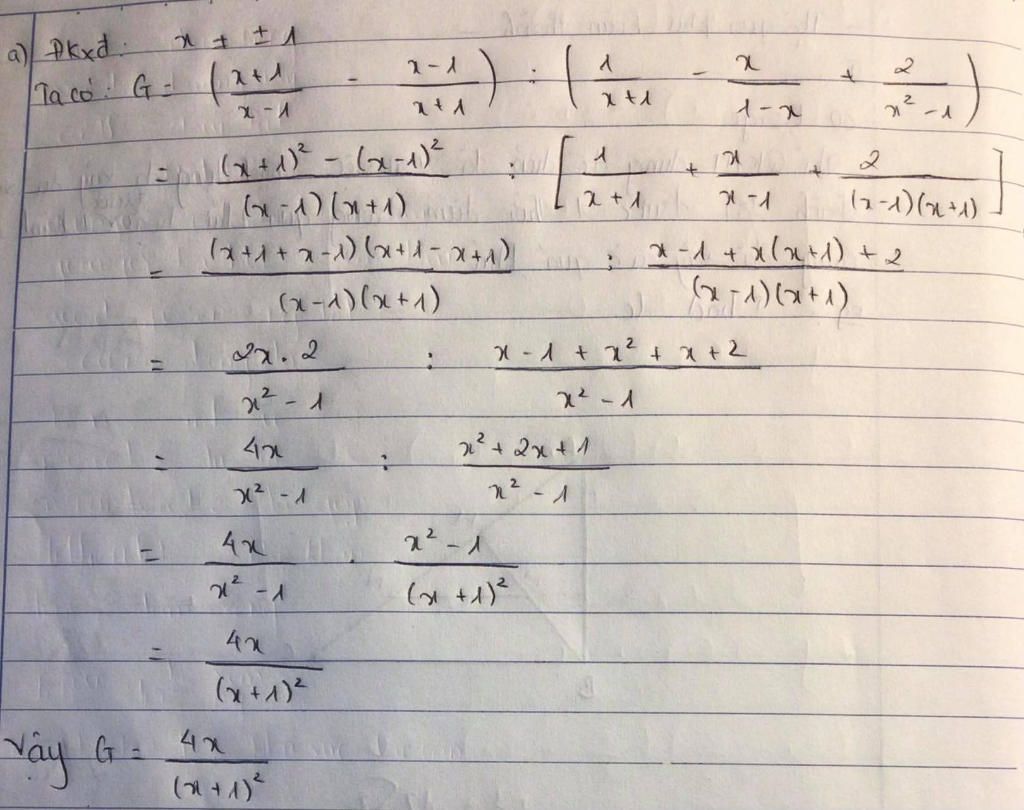 a) ĐKxđ: x ≠ ±1
Ta có: G = ( (x+1)/(x-1) - (x-1)/(x+1) ) : ( 1/(x+1) - x/(1-x) + 2/(x²-1) )
= ((x+1)² - (x-1)²)/((x-1)(x+1)) : [ 1/(x+1) + x/(x-1) + 2/((x-1)(x+1)) ]
= ((x+1+x-1)(x+1-x+1))/((x-1)(x+1)) : (x-1+x(x+1)+2)/((x-1)(x+1))
= (2x.2)/(x²-1) : (x-1+x²+x+2)/(x²-1)
= 4x/(x²-1) : (x²+2x+1)/(x²-1)
= 4x/(x²-1) . (x²-1)/(x+1)²
= 4x/(x+1)²
Vậy G = 4x/(x+1)²